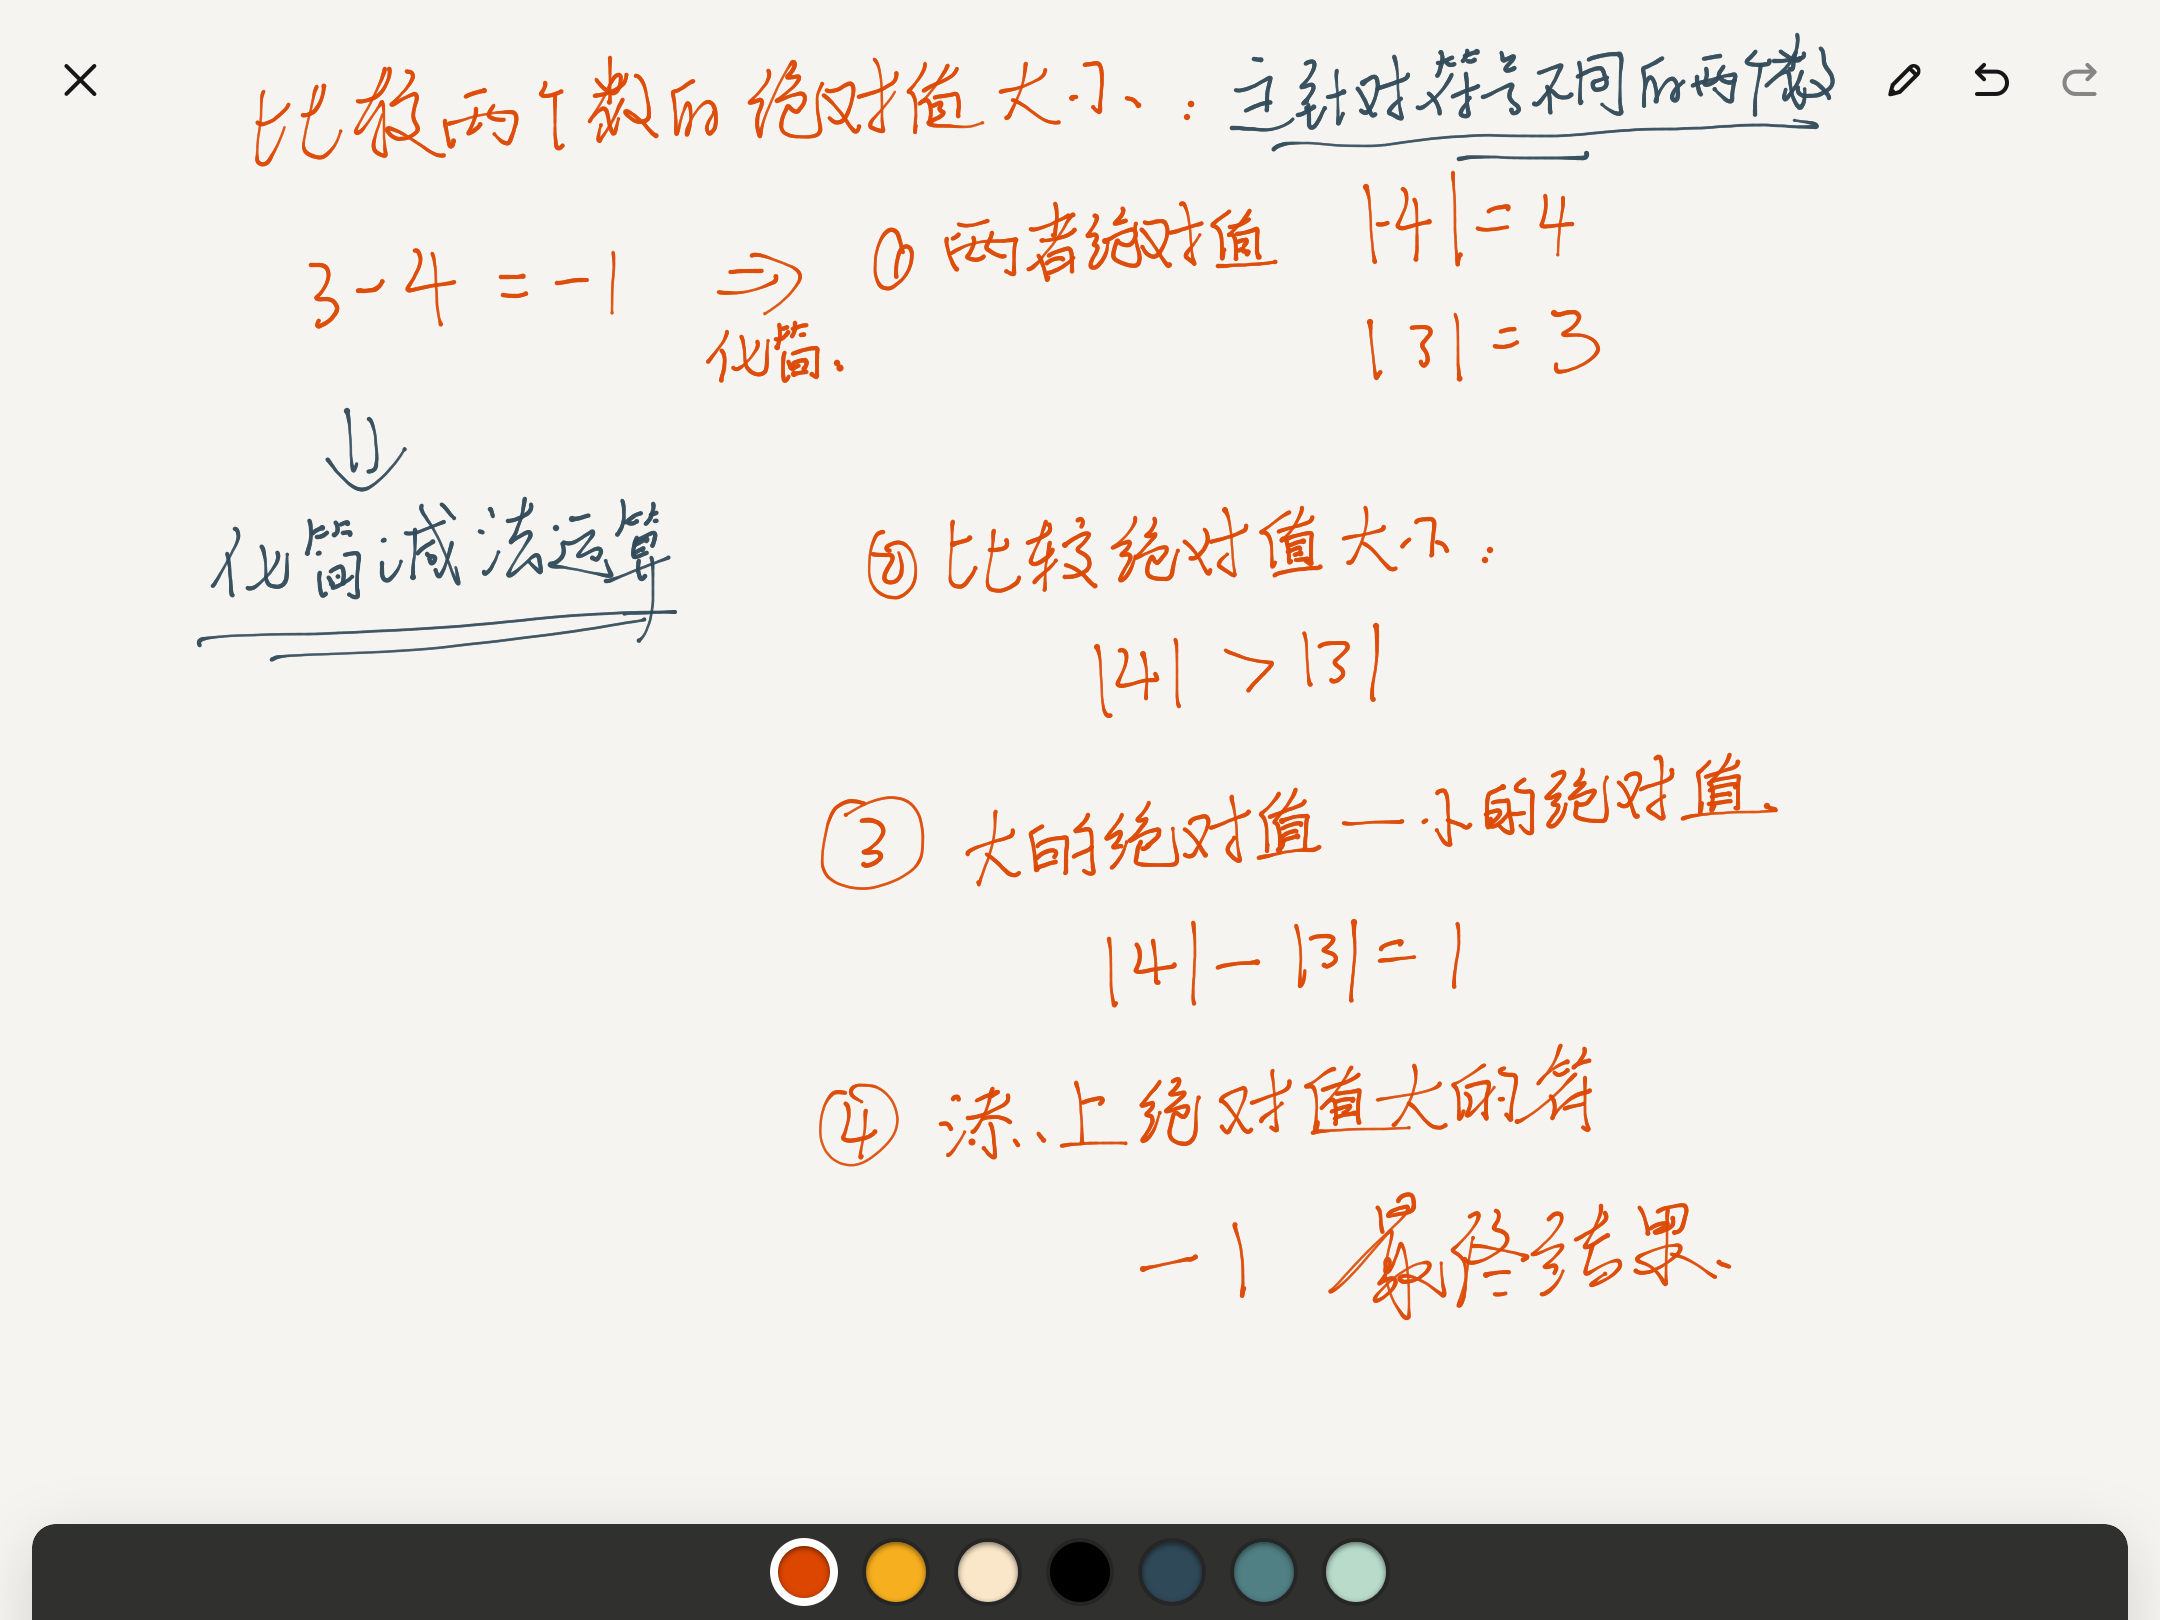 比较两个数的绝对值大小：主针对符号不同的两个数
3-4=-1 ⇒ ① 两者绝对值 |-4|=4
化简. |3|=3
⇓
化简减法运算
② 比较绝对值大小：
|4| > |3|
③ 大的绝对值－小的绝对值
|4|-|3|=1
④ 添上绝对值大的符
-1 最终结果.